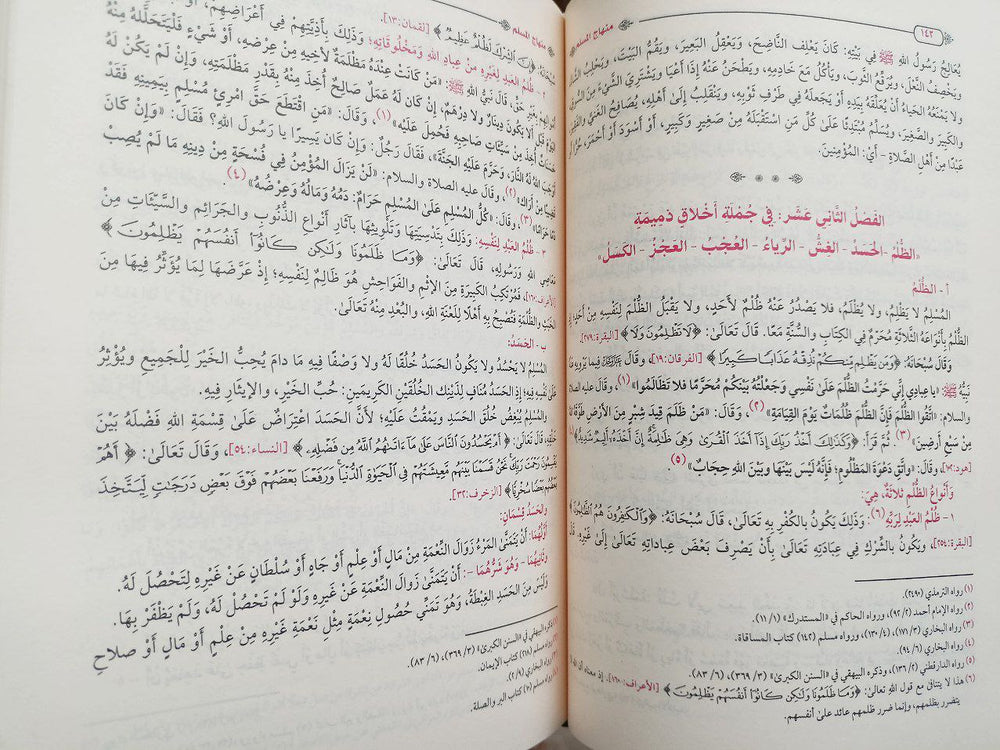 ١٤٢
منهاج المسلم
يُعَالِجُ رَسُولُ اللهِ ﷺ فِي بَيْتِهِ: كَانَ يَعْلِفُ النَّاضِحَ، وَيَعْقِلُ البَعِيرَ، وَيَقُمُّ البَيْتَ، وَيَحْلِبُ
وَيَخْصِفُ النَّعْلَ، وَيُرَقِّعُ الثَّوْبَ، وَيَأْكُلُ مَعَ خَادِمِهِ، وَيَطْحَنُ عَنْهُ إِذَا أَعْيَا وَيَشْتَرِي الشَّيْءَ مِنَ السُّوقِ
وَلا يَمْنَعُهُ الحَيَاءُ أَنْ يُعَلِّقَهُ بِيَدِهِ أَوْ يَجْعَلَهُ فِي طَرَفِ ثَوْبِهِ، وَيَنْقَلِبُ إِلَىٰ أَهْلِهِ، يُصَافِحُ الغَنِيَّ
وَالكَبِيرَ وَالصَّغِيرَ، وَيُسَلِّمُ مُبْتَدِئًا عَلَىٰ كُلِّ مَنِ اسْتَقْبَلَهُ مِنْ صَغِيرٍ وَكَبِيرٍ، أَوْ أَسْوَدَ أَوْ أَحْمَرَ،
عَبْدًا مِنْ أَهْلِ الصَّلاةِ - أَيْ: المُؤْمِنِينَ.
الفَصْلُ الثَّانِي عَشَرَ: فِي جُمْلَةِ أَخْلَاقٍ ذَمِيمَةٍ
«الظُّلْمُ - الحَسَدُ - الغِشُّ - الرِّيَاءُ - العُجْبُ - العَجْزُ - الكَسَلُ»
أ - الظُّلْمُ
المُسْلِمُ لا يَظْلِمُ، وَلا يُظْلَمُ، فَلا يَصْدُرُ عَنْهُ ظُلْمٌ لأَحَدٍ، وَلا يَقْبَلُ الظُّلْمَ لِنَفْسِهِ مِنْ أَحَدٍ؛ إِذِ
الظُّلْمُ بِأَنْوَاعِهِ الثَّلاثَةِ مُحَرَّمٌ فِي الكِتَابِ وَالسُّنَّةِ مَعًا. قَالَ تَعَالَىٰ: ﴿لَا تَظْلِمُونَ وَلَا﴾ [البقرة:٢٧٩]
وَقَالَ سُبْحَانَهُ: ﴿وَمَن يَظْلِم مِّنكُمْ نُذِقْهُ عَذَابًا كَبِيرًا﴾ [الفرقان:١٩] وَقَالَ فِيمَا يَرْوِيهِ
نَبِيُّهُ ﷺ: «يَا عِبَادِي إِنِّي حَرَّمْتُ الظُّلْمَ عَلَىٰ نَفْسِي وَجَعَلْتُهُ بَيْنَكُمْ مُحَرَّمًا فَلا تَظَالَمُوا»(١)، وَقَالَ عَلَيْهِ
وَالسلام: «اتَّقُوا الظُّلْمَ فَإِنَّ الظُّلْمَ ظُلُمَاتٌ يَوْمَ القِيَامَةِ»(٢)، وَقَالَ: «مَنْ ظَلَمَ قِيدَ شِبْرٍ مِنَ الأَرْضِ
مِنْ سَبْعِ أَرَضِينَ»(٣)؛ ثُمَّ قَرَأَ: ﴿وَكَذَٰلِكَ أَخْذُ رَبِّكَ إِذَا أَخَذَ الْقُرَىٰ وَهِيَ ظَالِمَةٌ إِنَّ أَخْذَهُ أَلِيمٌ شَدِيدٌ﴾
[هود:١٠٢] وَقَالَ: «وَاتَّقِ دَعْوَةَ المَظْلُومِ؛ فَإِنَّهُ لَيْسَ بَيْنَهَا وَبَيْنَ اللهِ حِجَابٌ»(٥).
وَأَنْوَاعُ الظُّلْمِ ثَلاثَةٌ، هِيَ:
١- ظُلْمُ العَبْدِ لِرَبِّهِ(٦): وَذَلِكَ يَكُونُ بِالكُفْرِ بِهِ تَعَالَىٰ، قَالَ سُبْحَانَهُ: ﴿وَالْكَافِرُونَ هُمُ الظَّالِمُونَ﴾
[البقرة:٢٥٤]، وَيَكُونُ بِالشِّرْكِ فِي عِبَادَتِهِ تَعَالَىٰ بِأَنْ يَصْرِفَ بَعْضَ عِبَادَاتِهِ تَعَالَىٰ إِلَىٰ غَيْرِهِ،
(١) رواه الترمذي (٢٤٩٠).
(٢) رواه الإمام أحمد (٩٢/٢)، ورواه الحاكم في «المستدرك» (١١/١).
(٣) رواه البخاري (١٧١/٣)، (١٣٠/٤)، ورواه مسلم (١٤٢) كتاب المساقاة.
(٤) رواه البخاري (٩٤/٦).
(٥) رواه الدارقطني (١٣٦/٢)، وذكره البيهقي في «السنن الكبرى» (٣٦٩/٣)، (٨٣/٦).
(٦) هذا لا يتنافى مع قول الله تعالى: ﴿وَمَا ظَلَمُونَا وَلَٰكِن كَانُوا أَنفُسَهُمْ يَظْلِمُونَ﴾ [الأعراف:١٦٠]. إذ معناه أن الله
يتضرر بظلمهم، وإنما ضرر ظلمهم عائد على أنفسهم.
منهاج المسلم
سُبْحَانَهُ: ﴿إِنَّ الشِّرْكَ لَظُلْمٌ عَظِيمٌ﴾ [لقمان:١٣].
٢- ظُلْمُ العَبْدِ لِغَيْرِهِ مِنْ عِبَادِ اللهِ وَمَخْلُوقَاتِهِ: وَذَلِكَ بِأَذِيَّتِهِمْ فِي أَعْرَاضِهِمْ،
بِغَيْرِ حَقٍّ، قَالَ النَّبِيُّ ﷺ: «مَنْ كَانَتْ عِنْدَهُ مَظْلَمَةٌ لأَخِيهِ مِنْ عِرْضِهِ، أَوْ شَيْءٍ فَلْيَتَحَلَّلْهُ مِنْهُ
قَبْلَ أَلا يَكُونَ دِينَارٌ وَلا دِرْهَمٌ، إِنْ كَانَ لَهُ عَمَلٌ صَالِحٌ أُخِذَ مِنْهُ بِقَدْرِ مَظْلَمَتِهِ، وَإِنْ لَمْ يَكُنْ لَهُ
حَسَنَاتٌ أُخِذَ مِنْ سَيِّئَاتِ صَاحِبِهِ فَحُمِلَ عَلَيْهِ»(١)، وَقَالَ: «مَنِ اقْتَطَعَ حَقَّ امْرِئٍ مُسْلِمٍ بِيَمِينِهِ فَقَدْ
أَوْجَبَ اللهُ لَهُ النَّارَ، وَحَرَّمَ عَلَيْهِ الجَنَّةَ»، فَقَالَ رَجُلٌ: وَإِنْ كَانَ يَسِيرًا يَا رَسُولَ اللهِ؟ فَقَالَ: «وَإِنْ كَانَ
قَضِيبًا مِنْ أَرَاكٍ»(٢)، وَقَالَ عَلَيْهِ الصلاة والسلام: «لَنْ يَزَالَ المُؤْمِنُ فِي فُسْحَةٍ مِنْ دِينِهِ مَا لَمْ يُصِبْ
دَمًا حَرَامًا»(٣)، وَقَالَ: «كُلُّ المُسْلِمِ عَلَىٰ المُسْلِمِ حَرَامٌ: دَمُهُ وَمَالُهُ وَعِرْضُهُ»(٤).
٣- ظُلْمُ العَبْدِ لِنَفْسِهِ: وَذَلِكَ بِتَدْسِيَتِهَا وَتَلْوِيثِهَا بِآثَارِ أَنْوَاعِ الذُّنُوبِ وَالجَرَائِمِ وَالسَّيِّئَاتِ مِنْ
مَعَاصِي اللهِ وَرَسُولِهِ، قَالَ تَعَالَىٰ: ﴿وَمَا ظَلَمُونَا وَلَٰكِن كَانُوا أَنفُسَهُمْ يَظْلِمُونَ﴾
[الأعراف:١٦٠]، فَمُرْتَكِبُ الكَبِيرَةِ مِنَ الإِثْمِ وَالفَوَاحِشِ هُوَ ظَالِمٌ لِنَفْسِهِ؛ إِذْ عَرَّضَهَا لِمَا يُؤَثِّرُ فِيهَا مِنَ
الخُبْثِ وَالظُّلْمَةِ فَتُصْبِحُ بِهِ أَهْلًا لِلَعْنَةِ اللهِ، وَالبُعْدِ مِنْهُ تَعَالَىٰ.
ب - الحَسَدُ:
المُسْلِمُ لا يَحْسُدُ وَلا يَكُونُ الحَسَدُ خُلُقًا لَهُ وَلا وَصْفًا فِيهِ مَا دَامَ يُحِبُّ الخَيْرَ لِلْجَمِيعِ وَيُؤْثِرُ
عَلَىٰ نَفْسِهِ فِيهِ؛ إِذِ الحَسَدُ مُنَافٍ لِذَيْنِكَ الخُلُقَيْنِ الكَرِيمَيْنِ: حُبِّ الخَيْرِ، وَالإِيثَارِ فِيهِ.
وَالمُسْلِمُ يُبْغِضُ خُلُقَ الحَسَدِ وَيَمْقُتُ عَلَيْهِ؛ لأَنَّ الحَسَدَ اعْتِرَاضٌ عَلَىٰ قِسْمَةِ اللهِ فَضْلَهُ بَيْنَ
قَالَ تَعَالَىٰ: ﴿أَمْ يَحْسُدُونَ النَّاسَ عَلَىٰ مَا آتَاهُمُ اللَّهُ مِن فَضْلِهِ﴾ [النساء:٥٤]، وَقَالَ تَعَالَىٰ: ﴿أَهُمْ
يَقْسِمُونَ رَحْمَتَ رَبِّكَ نَحْنُ قَسَمْنَا بَيْنَهُم مَّعِيشَتَهُمْ فِي الْحَيَاةِ الدُّنْيَا وَرَفَعْنَا بَعْضَهُمْ فَوْقَ بَعْضٍ دَرَجَاتٍ لِّيَتَّخِذَ
بَعْضُهُم بَعْضًا سُخْرِيًّا﴾ [الزخرف:٣٢].
وَالحَسَدُ قِسْمَانِ:
أَوَّلُهُمَا: أَنْ يَتَمَنَّىٰ المَرْءُ زَوَالَ النِّعْمَةِ مِنْ مَالٍ أَوْ عِلْمٍ أَوْ جَاهٍ أَوْ سُلْطَانٍ عَنْ غَيْرِهِ لِتَحْصُلَ لَهُ.
وَثَانِيهِمَا - وَهُوَ شَرُّهُمَا -: أَنْ يَتَمَنَّىٰ زَوَالَ النِّعْمَةِ عَنْ غَيْرِهِ وَلَوْ لَمْ تَحْصُلْ لَهُ، وَلَمْ يَظْفَرْ بِهَا.
وَلَيْسَ مِنَ الحَسَدِ الغِبْطَةُ، وَهُوَ تَمَنِّي حُصُولِ نِعْمَةٍ مِثْلِ نِعْمَةِ غَيْرِهِ مِنْ عِلْمٍ أَوْ مَالٍ أَوْ صَلاحِ
(١) ذكره البيهقي في «السنن الكبرى» (٣٦٩/٣)، (٨٣/٦).
(٢) رواه مسلم (٢١٨) كتاب الإيمان.
(٣) رواه البخاري (٢/٩).
(٤) رواه مسلم (١٠) كتاب البر والصلة.